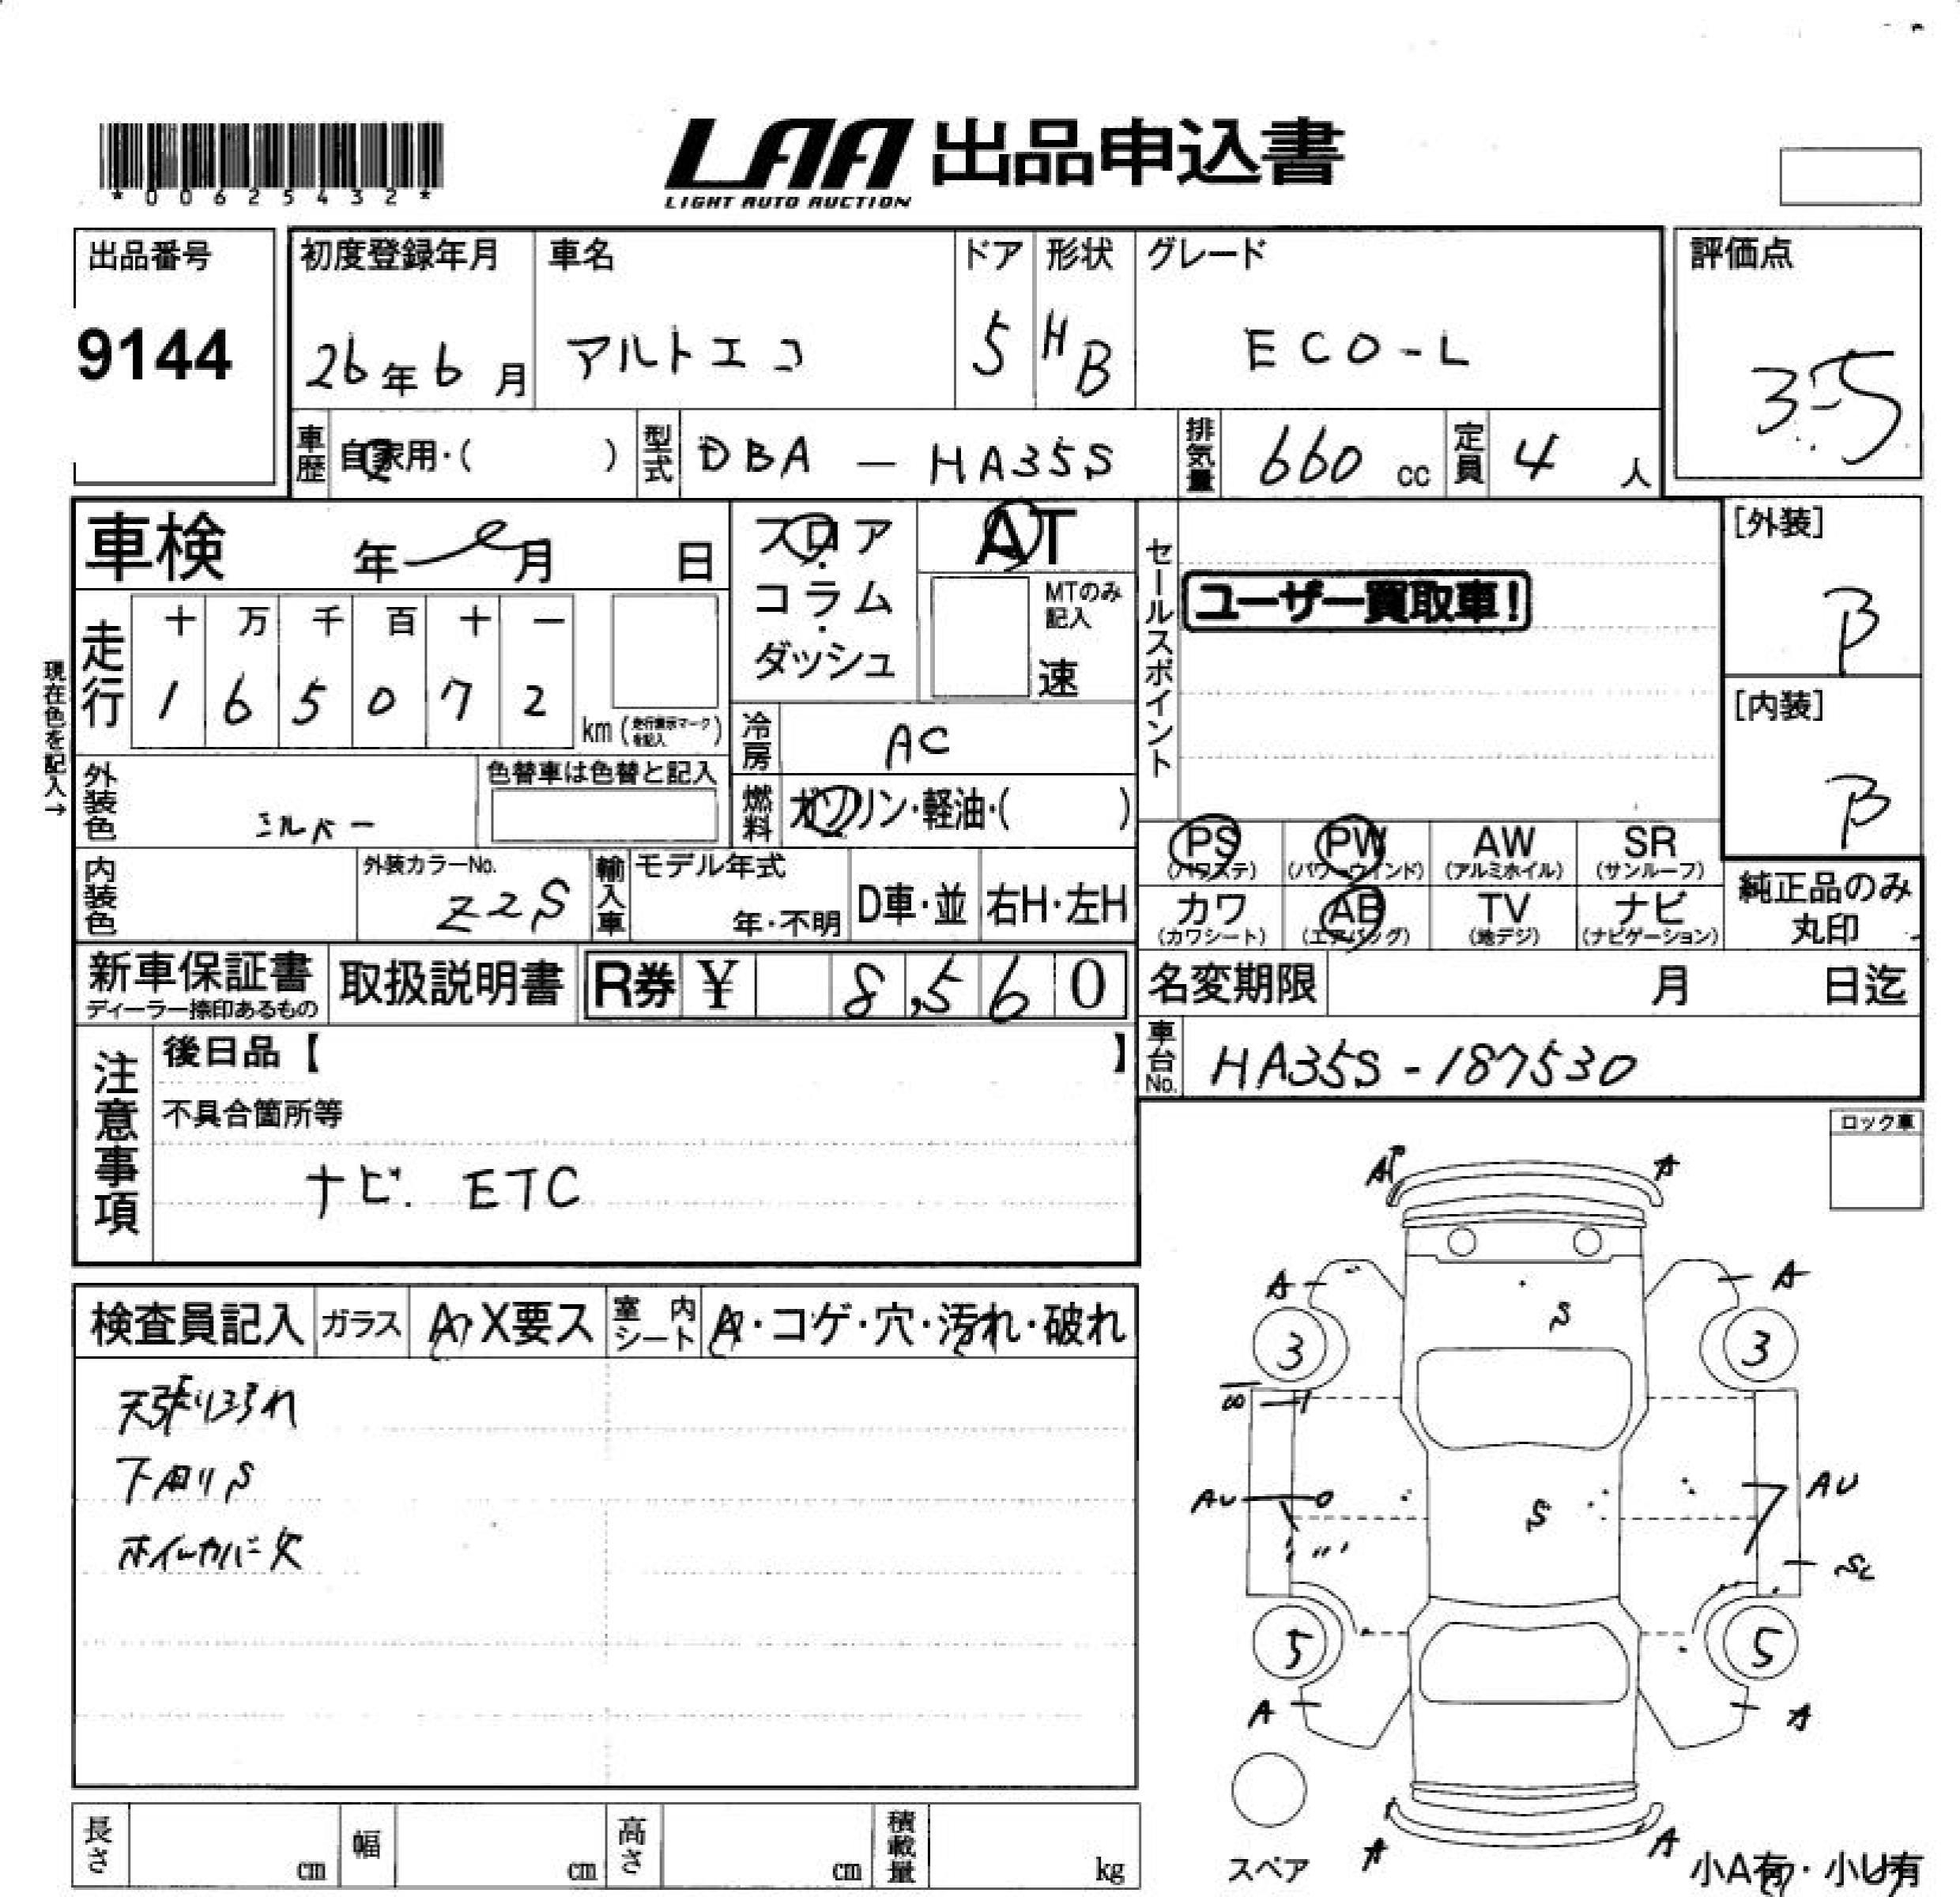 *00625432*
LAA 出品申込書
LIGHT AUTO AUCTION
出品番号
9144
初度登録年月
26年6月
車名
アルトエコ
ドア
5
形状
HB
グレード
ECO-L
評価点
3.5
車歴
自家用・( )
型式
DBA - HA35S
排気量
660 cc
定員
4 人
車検 年 月 日
フロア・コラム・ダッシュ
AT
MTのみ記入
速
セールスポイント
ユーザー買取車!
[外装]
B
[内装]
B
現在色を記入→
走行
十 万 千 百 十 一
1 6 5 0 7 2
km (走行表示マークを記入)
冷房
AC
燃料
ガソリン・軽油・( )
外装色
シルバー
色替車は色替と記入
内装色
外装カラーNo.
Z2S
輸入車
モデル年式
年・不明
D車・並
右H・左H
PS (パワステ)
PW (パワーウィンド)
AW (アルミホイル)
SR (サンルーフ)
カワ (カワシート)
AB (エアバッグ)
TV (地デジ)
ナビ (ナビゲーション)
純正品のみ丸印
新車保証書
ディーラー捺印あるもの
取扱説明書
R券 ¥ 8,560
名変期限 月 日迄
車台No.
HA35S-187530
注意事項
後日品【 】
不具合箇所等
ナビ. ETC
ロック車
検査員記入
ガラス
A・X要ス
室内シート
A・コゲ・穴・汚れ・破れ
下回りS
ホイルカバー欠
AP
A
A
A
S
3
3
AU
S
AU
5
5
A
A
スペア
A
A
小A有・小U有
長さ cm
幅 cm
高さ cm
積載量 kg